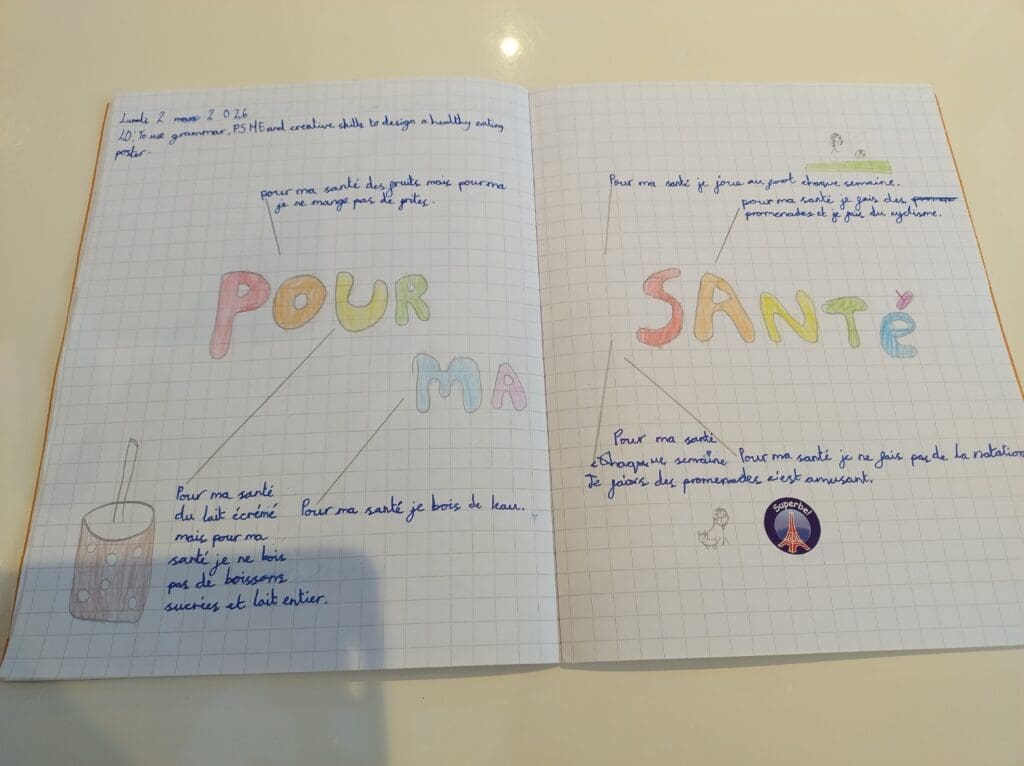 Lundi 2 mars 2026
LO: To use grammar, PSHE and creative skills to design a healthy eating
poster.
pour ma santé des fruits mais pour ma
je ne mange pas de frites.
POUR
MA
Pour ma santé
du lait écrémé
mais pour ma
santé je ne bois
pas de boissons
sucrées et lait entier.
Pour ma santé je bois de l'eau.
Pour ma santé je joue au foot chaque semaine.
pour ma santé je fais des
promenades et je fais du cyclisme.
SANTÉ
Pour ma santé
semaine
Pour ma santé je ne fais pas de la natation
Je des promenades c'est amusant.
Superbe!